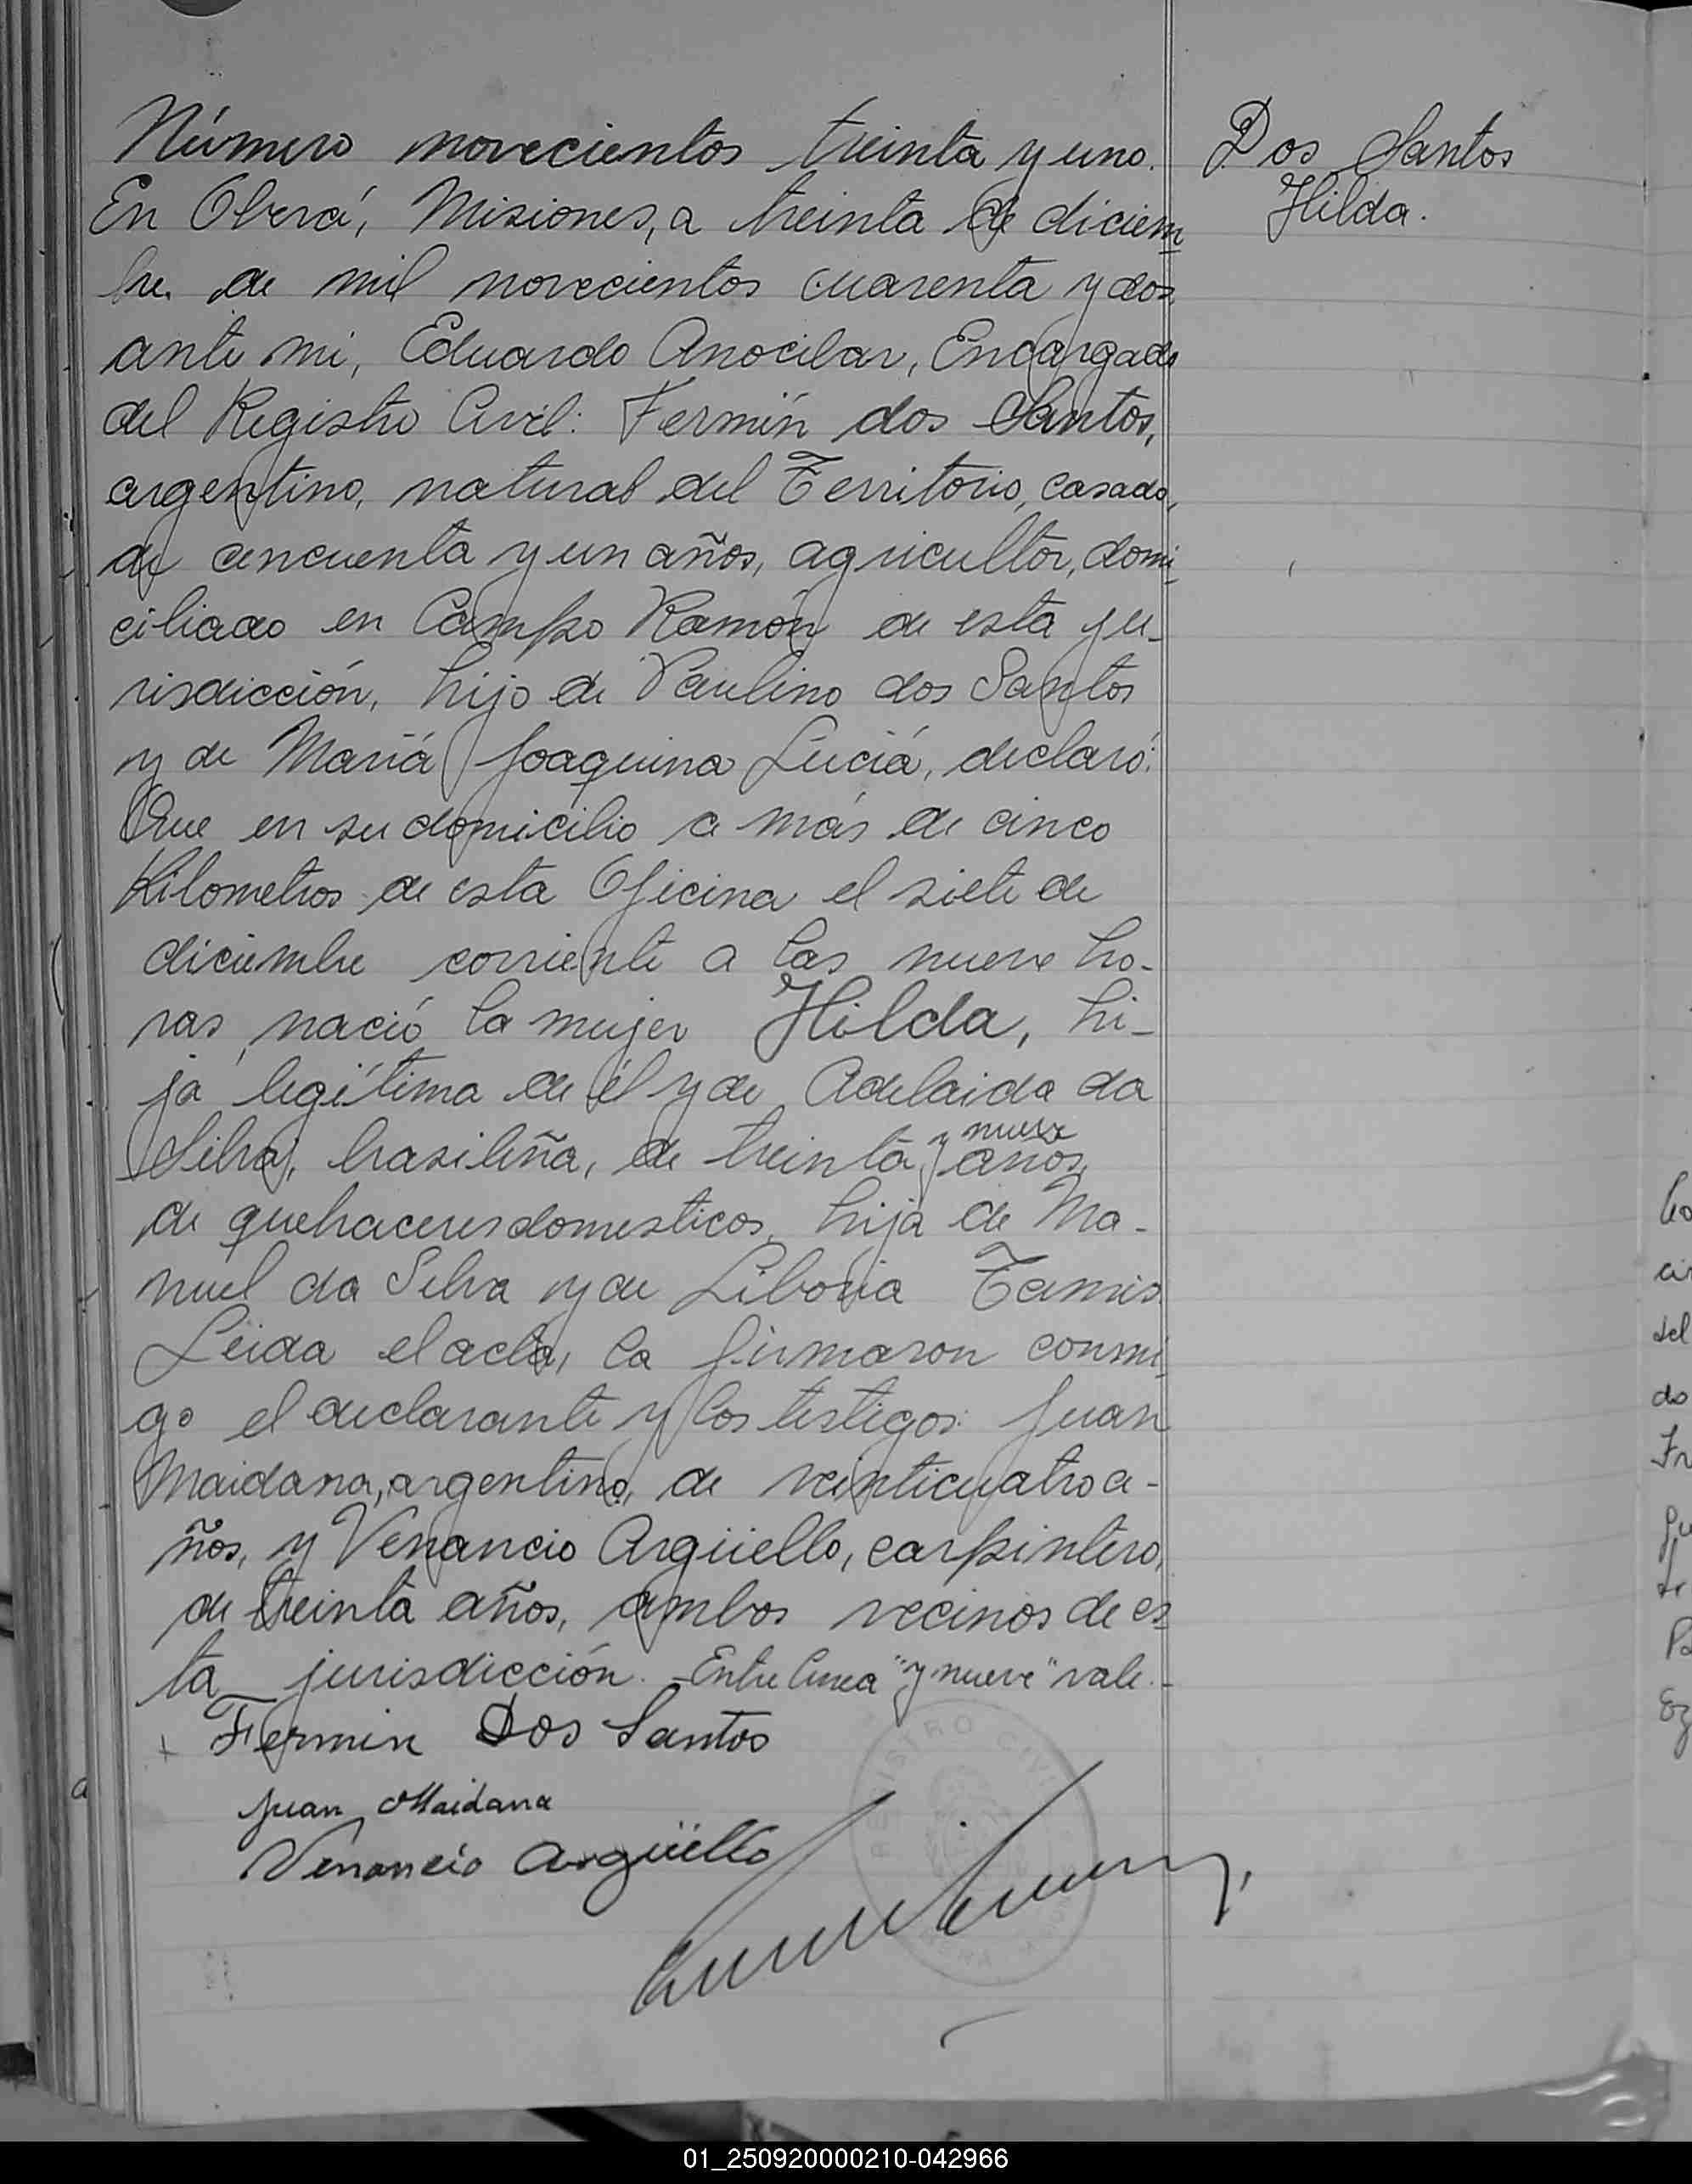 Número novecientos treinta y uno.
En Oberá, Misiones, a treinta de diciem
bre de mil novecientos cuarenta y dos
ante mi, Eduardo Anocibar, Encargado
del Registro Civil: Fermín dos Santos,
argentino, natural del Territorio, casado,
de cincuenta y un años, agricultor, domi
ciliado en Campo Ramón de esta ju-
risdicción, hijo de Paulino dos Santos
y de María Joaquina Luciá, declaró:
Que en su domicilio a más de cinco
Kilometros de esta Oficina el siete de
diciembre corriente a las nueve ho-
ras, nació la mujer Hilda, hi-
ja legítima de él y de Adelaida da
Silva, brasileña, de treinta y nueve años,
de quehaceres domesticos, hija de Ma-
nuel da Silva y de Liboria
Leida el acta, la firmaron conmi
go el declarante y los testigos: Juan
Maidana, argentino, de veinticuatro a-
ños, y Venancio Argüello, carpintero,
de treinta años, ambos vecinos de es
ta jurisdicción. - Entre linea "y nueve" vale. -
Fermin Dos Santos
Juan Maidana
Venancio Argüello
REGISTRO CIVIL
Dos Santos
Hilda.
01_250920000210-042966